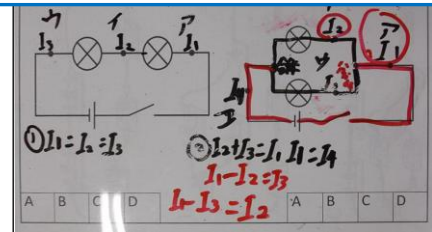 ウ イ ア
I₃ I₂ I₁
I₂ ア
I₁
I₃
I₄
① I₁=I₂=I₃
② I₂+I₃=I₁ I₁=I₄
I₁-I₂=I₃
I₁-I₃=I₂
A B C D A B C D